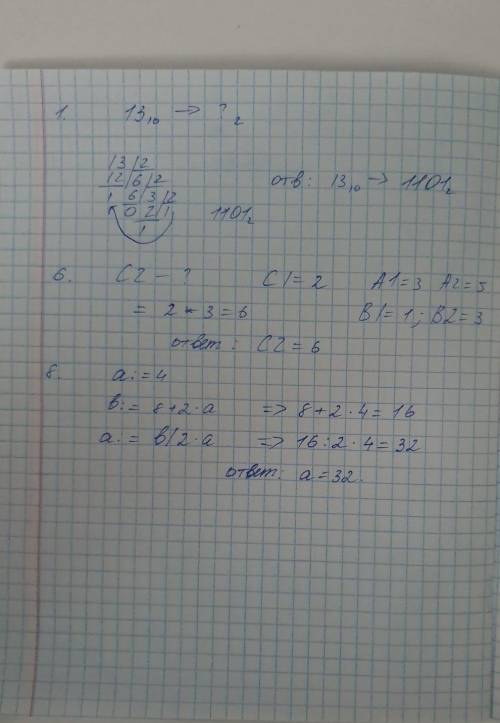 1. 13₁₀ → ?₂
13 | 2
12 | 6 | 2
1 6 3 | 2
0 2 1 1101₂
1
отв: 13₁₀ → 1101₂
6. C2 - ? C1 = 2 A1=3 A2=5
= 2 * 3 = 6 B1=1; B2=3
ответ: C2 = 6
8. a:=4
b:= 8+2·a => 8+2·4=16
a:= b/2·a => 16:2·4=32
ответ: a=32.